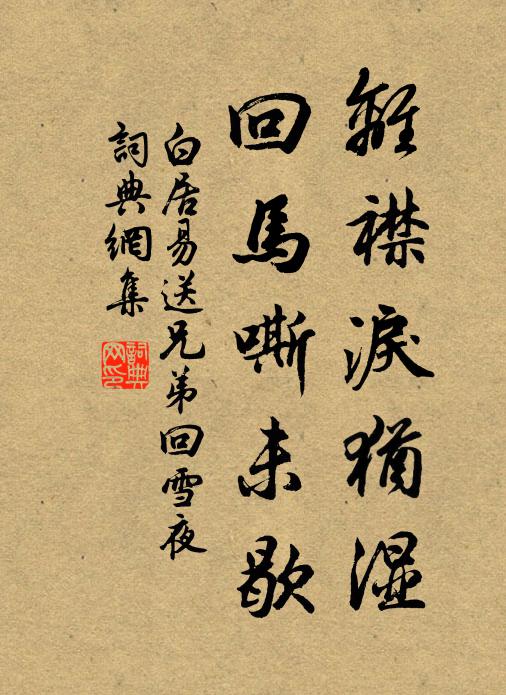 離襟淚猶濕
回馬嘶未歇
白居易送兄弟回雪夜
詞典網集
詞典网印